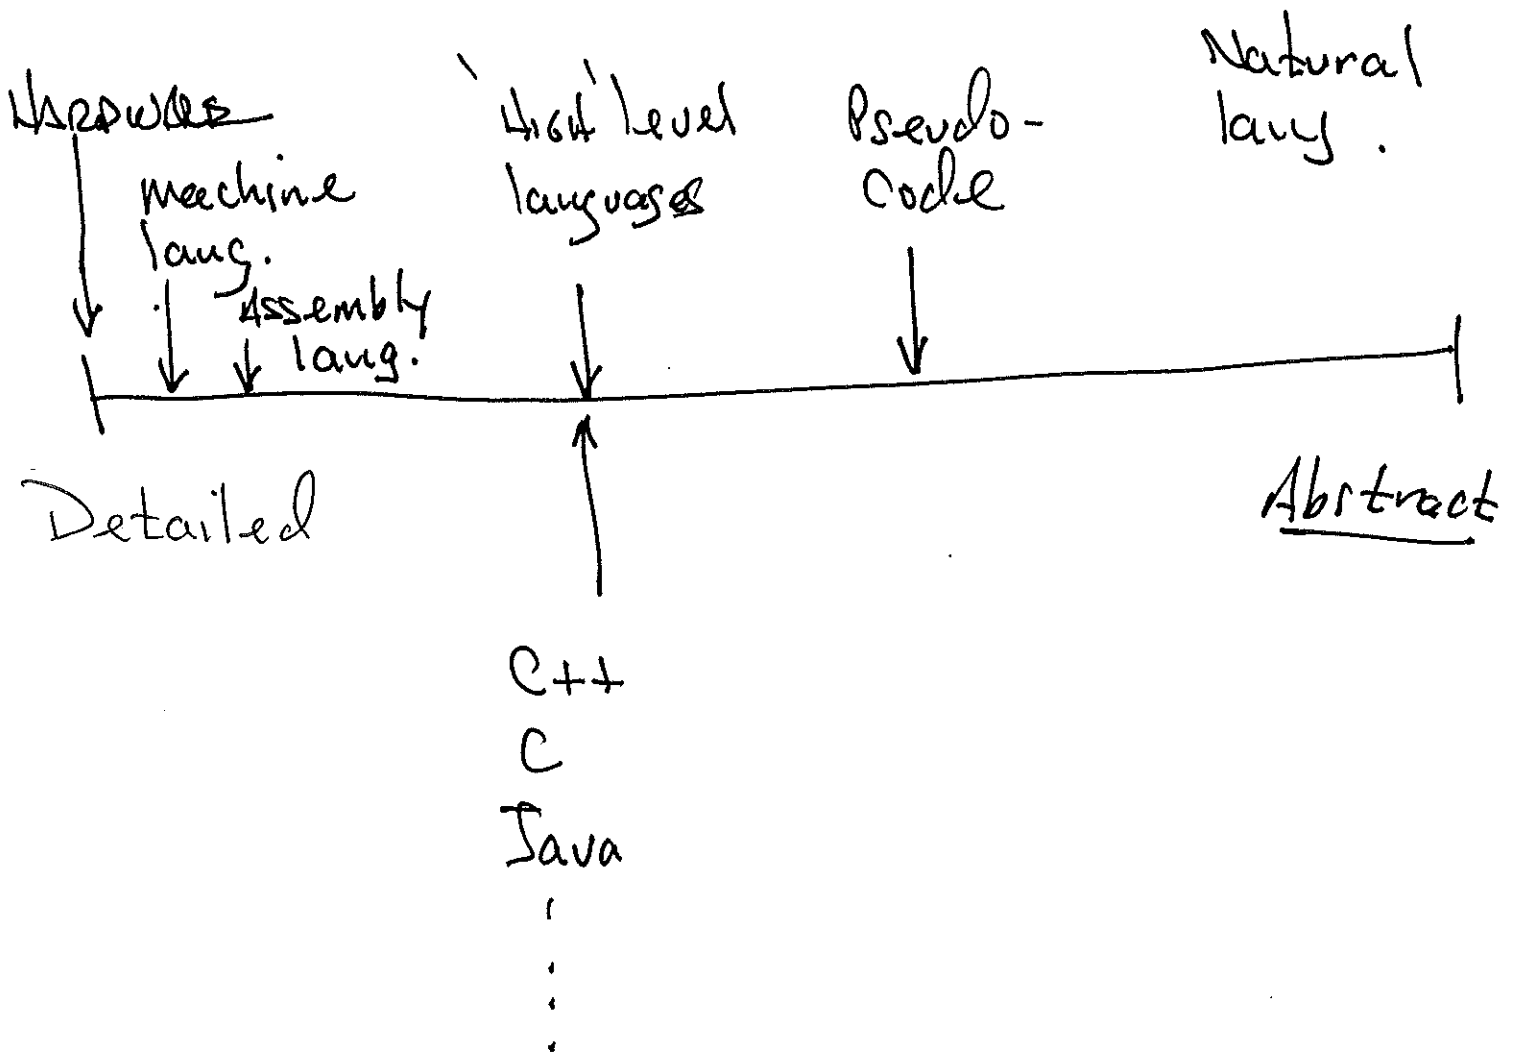 HARDWARE
machine
lang.
Assembly
lang.
'High' level
languages
Pseudo-
Code
Natural
lang.
Detailed
Abstract
C++
C
Java